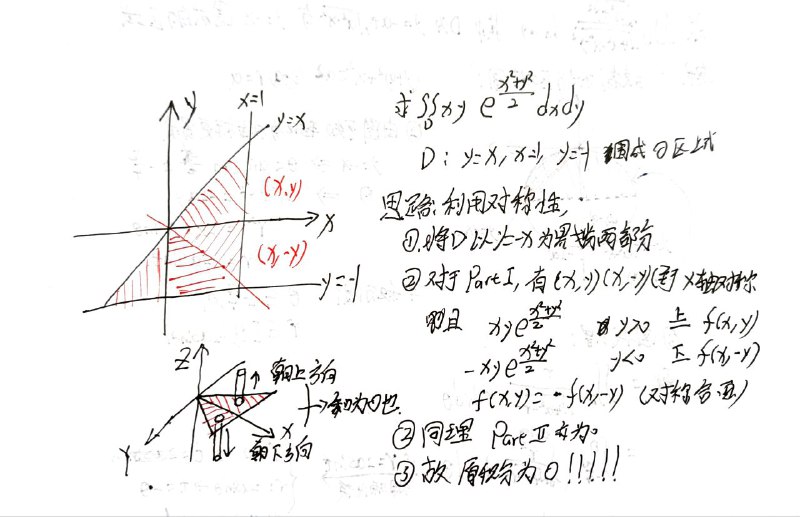 y
x=1
y=x
(x,y)
x
(x,-y)
y=-1
求∬xy e^{\frac{x²+y²}{2}} dxdy
D
D: y=x, x=1, y=-1 围成的区域
思路:利用对称性,
①.将D以y=-x为界划两部分
②对于Part I,有(x,y)(x,-y)关于x轴对称
且 xy e^{\frac{x²+y²}{2}} y>0 上 f(x,y)
-xy e^{\frac{x²+y²}{2}} y<0 下 f(x,-y)
f(x,y)=-f(x,-y) (对称合适)
②同理 Part II 亦为0
③故 原积分为0!!!!!
Z
朝上方向
→和为0也.
X
Y
朝下方向